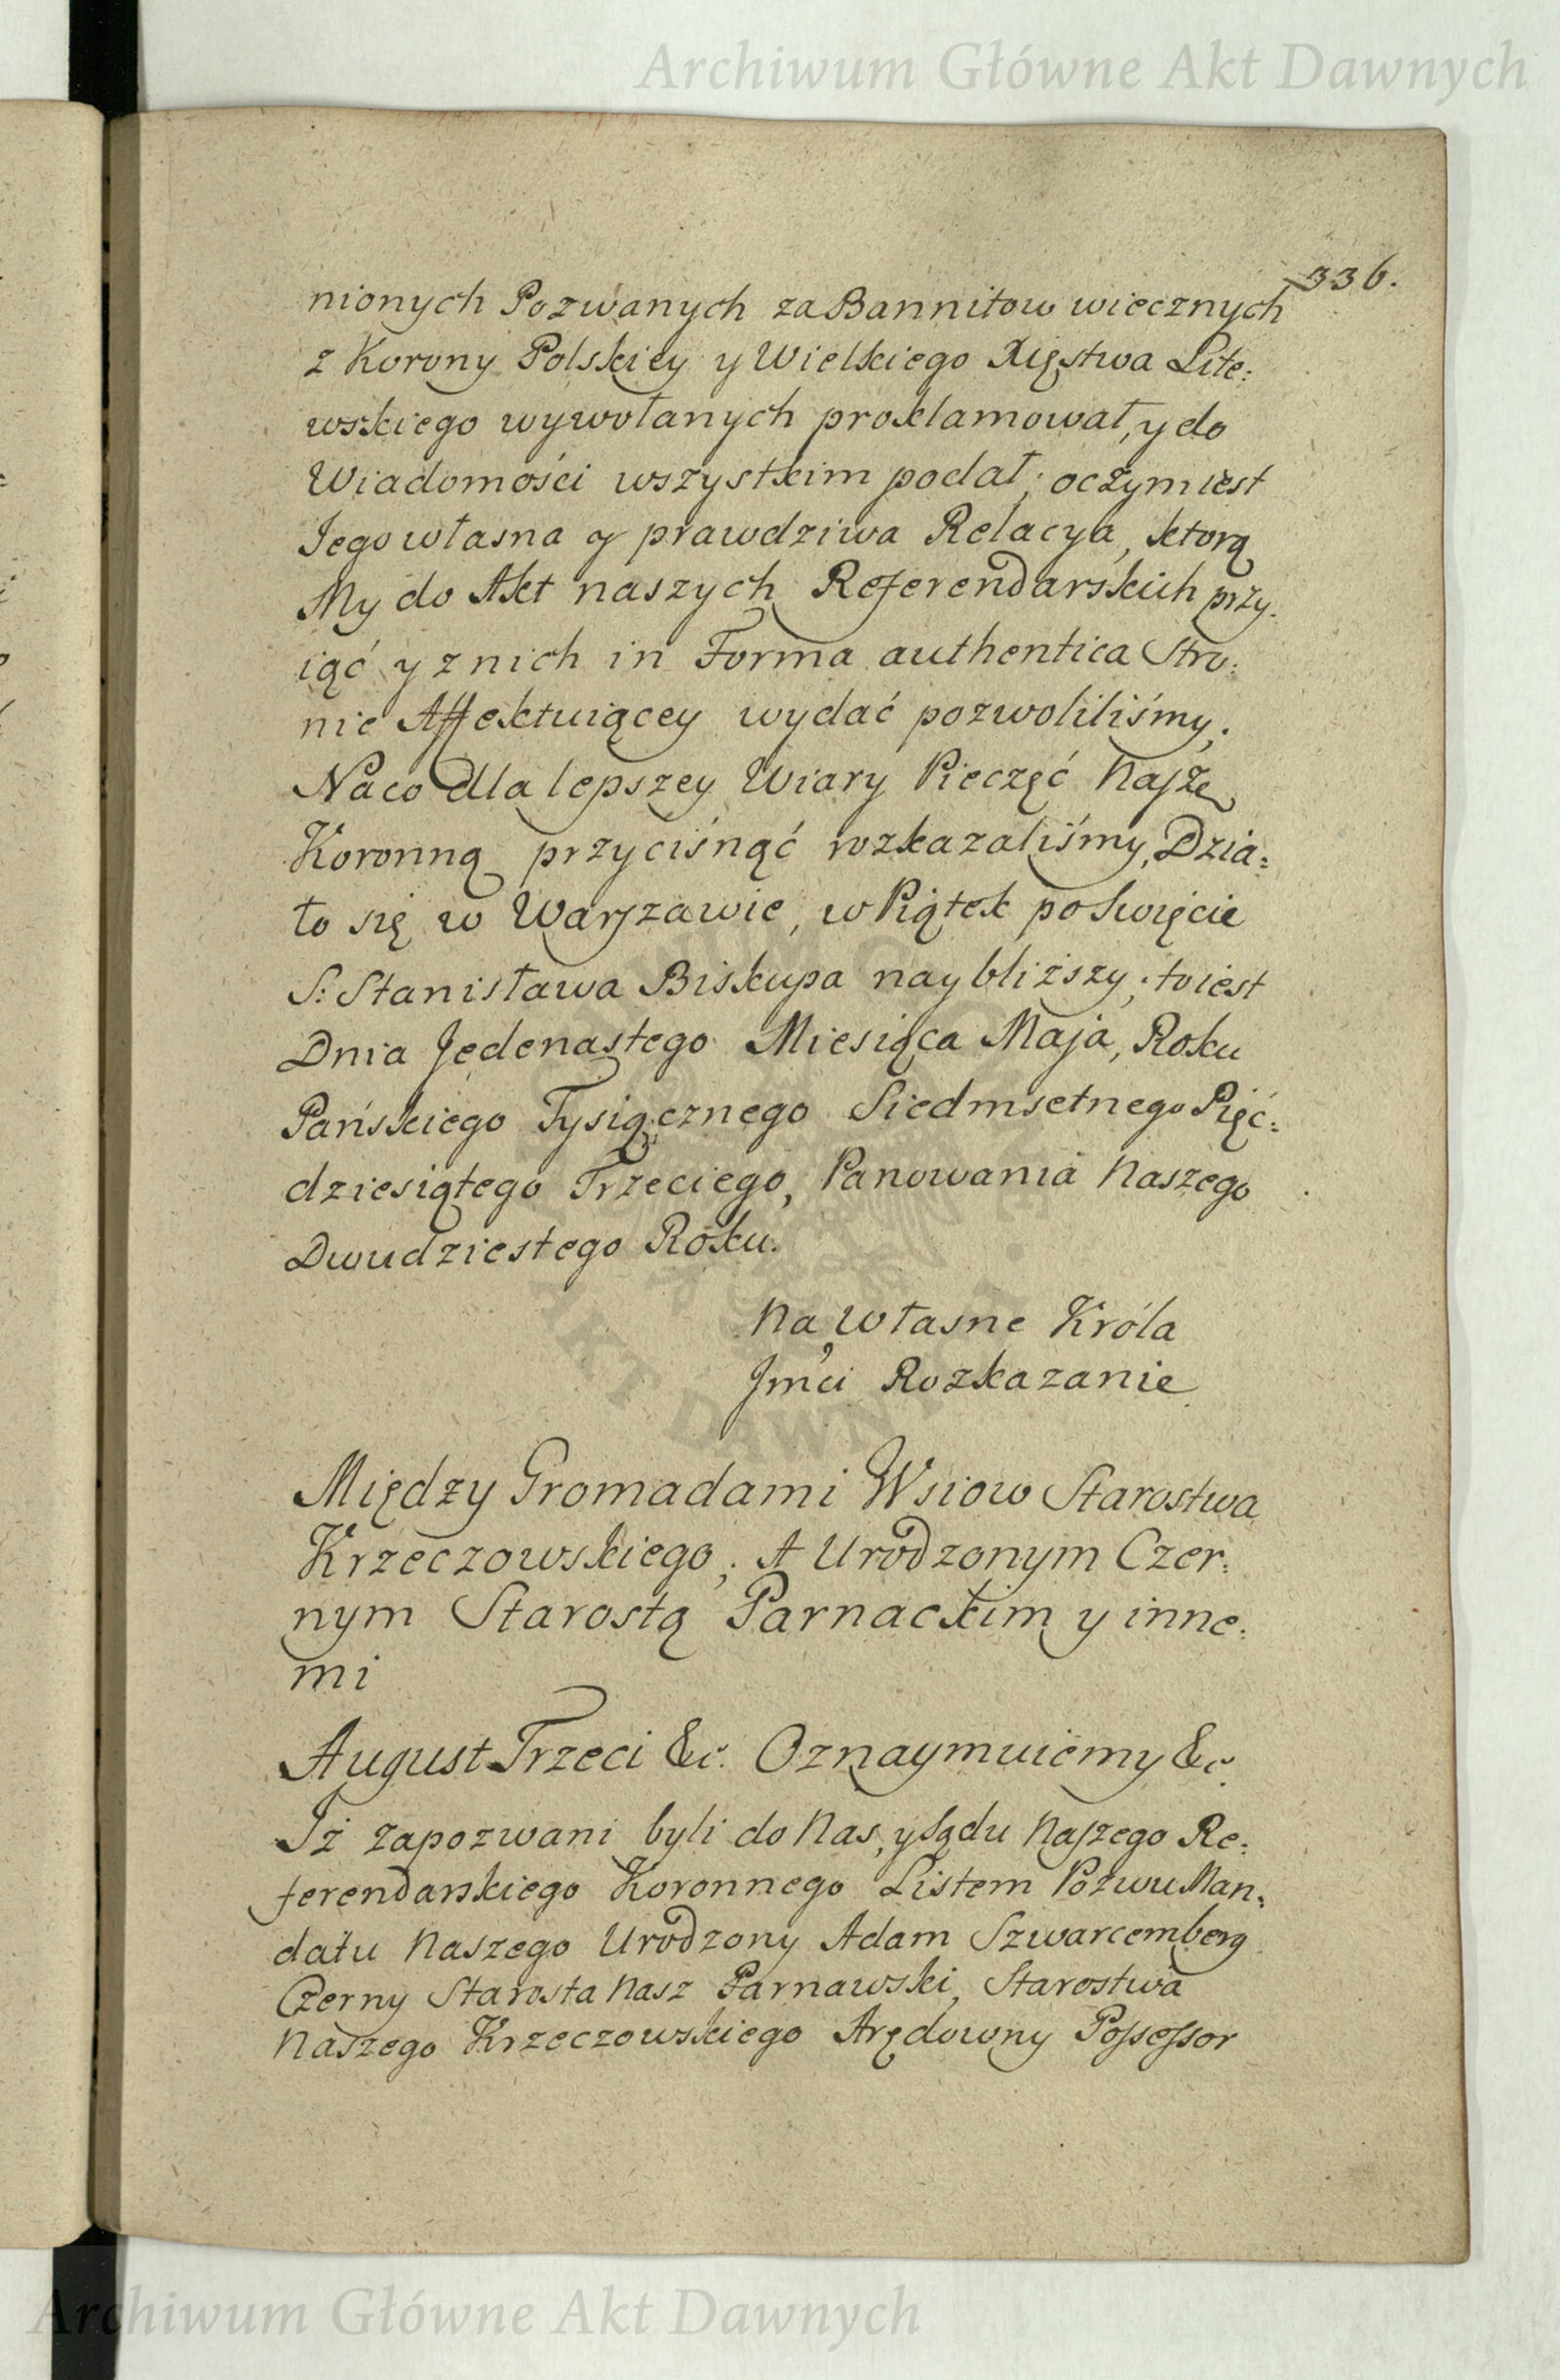 Archiwum Główne Akt Dawnych
336.
nionych Pozwanych za Bannitow wiecznych
z Korony Polskiey y Wielkiego Xięstwa Lite:
wskiego wywołanych proklamował, y do
Wiadomości wszystkim podał; oczym iest
Jego własna y prawdziwa Relacya, ktorą
My do Akt naszych Referendarskich przy:
iąć y z nich in Forma authentica Stro:
nie Affektuiącey wydać pozwoliliśmy.
Na co dla lepszey Wiary Pieczęć Naszę
Koronną przycisnąć rozkazaliśmy, Dzia:
ło się w Warszawie, w Piątek po Swięcie
S: Stanisława Biskupa naybliższy; to iest
Dnia Jedenastego Miesiąca Maja, Roku
Pańskiego Tysiącznego Siedmsetnego Pięć:
dziesiątego Trzeciego, Panowania Naszego
Dwudziestego Roku.
Na Własne Króla
Jmći Rozkazanie
Między Gromadami Wsiow Starostwa
Krzeczowskiego; A Urodzonym Czer:
nym Starostą Parnackim y inne:
mi
August Trzeci &c. Oznaymuiemy &c.
Iż zapozwani byli do Nas, y Sądu Naszego Re:
ferendarskiego Koronnego Listem Pozwu Man:
datu Naszego Urodzony Adam Szwarcemberg
Czerny Starosta Nasz Parnawski, Starostwa
Naszego Krzeczowskiego Arędowny Possessor
Archiwum Główne Akt Dawnych